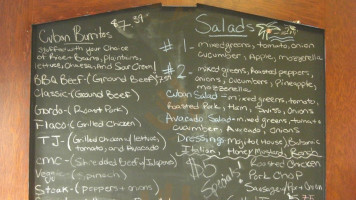 Cuban Burritos $7.39
Stuffed with your Choice
of Rice + Beans, Plantains,
lettuce, Cheese, And Sour Cream!
BBQ Beef- (Ground Beef)
Classic- (Ground Beef)
Gordo- (Roast Pork)
Flaco- (Grilled Chicken)
TJ- (Grilled Chicken, lettuce,
tomato, and Avocado)
CMC- (Shredded Beef w/Jalapeno)
Veggie- (spinach)
Steak- (peppers + onions)
Salads
#1- mixed greens, tomato, onion
cucumber, Apple, mozzerella
#2- mixed greens, Roasted peppers,
onions, cucumbers, Pineapple,
mozzerella
Cuban Salad- mixed greens, tomato,
Roasted Pork, Ham, Swiss, Onions
Avocado Salad- mixed greens, tomato
cucumber, Avocado, Onions
Dressings- Mojito (House) Balsamic
Italian, Honey Mustard, Ranch
$5 Specials!
Roasted Chicken
Pork Chop
Sausage w/ Pep + Onion